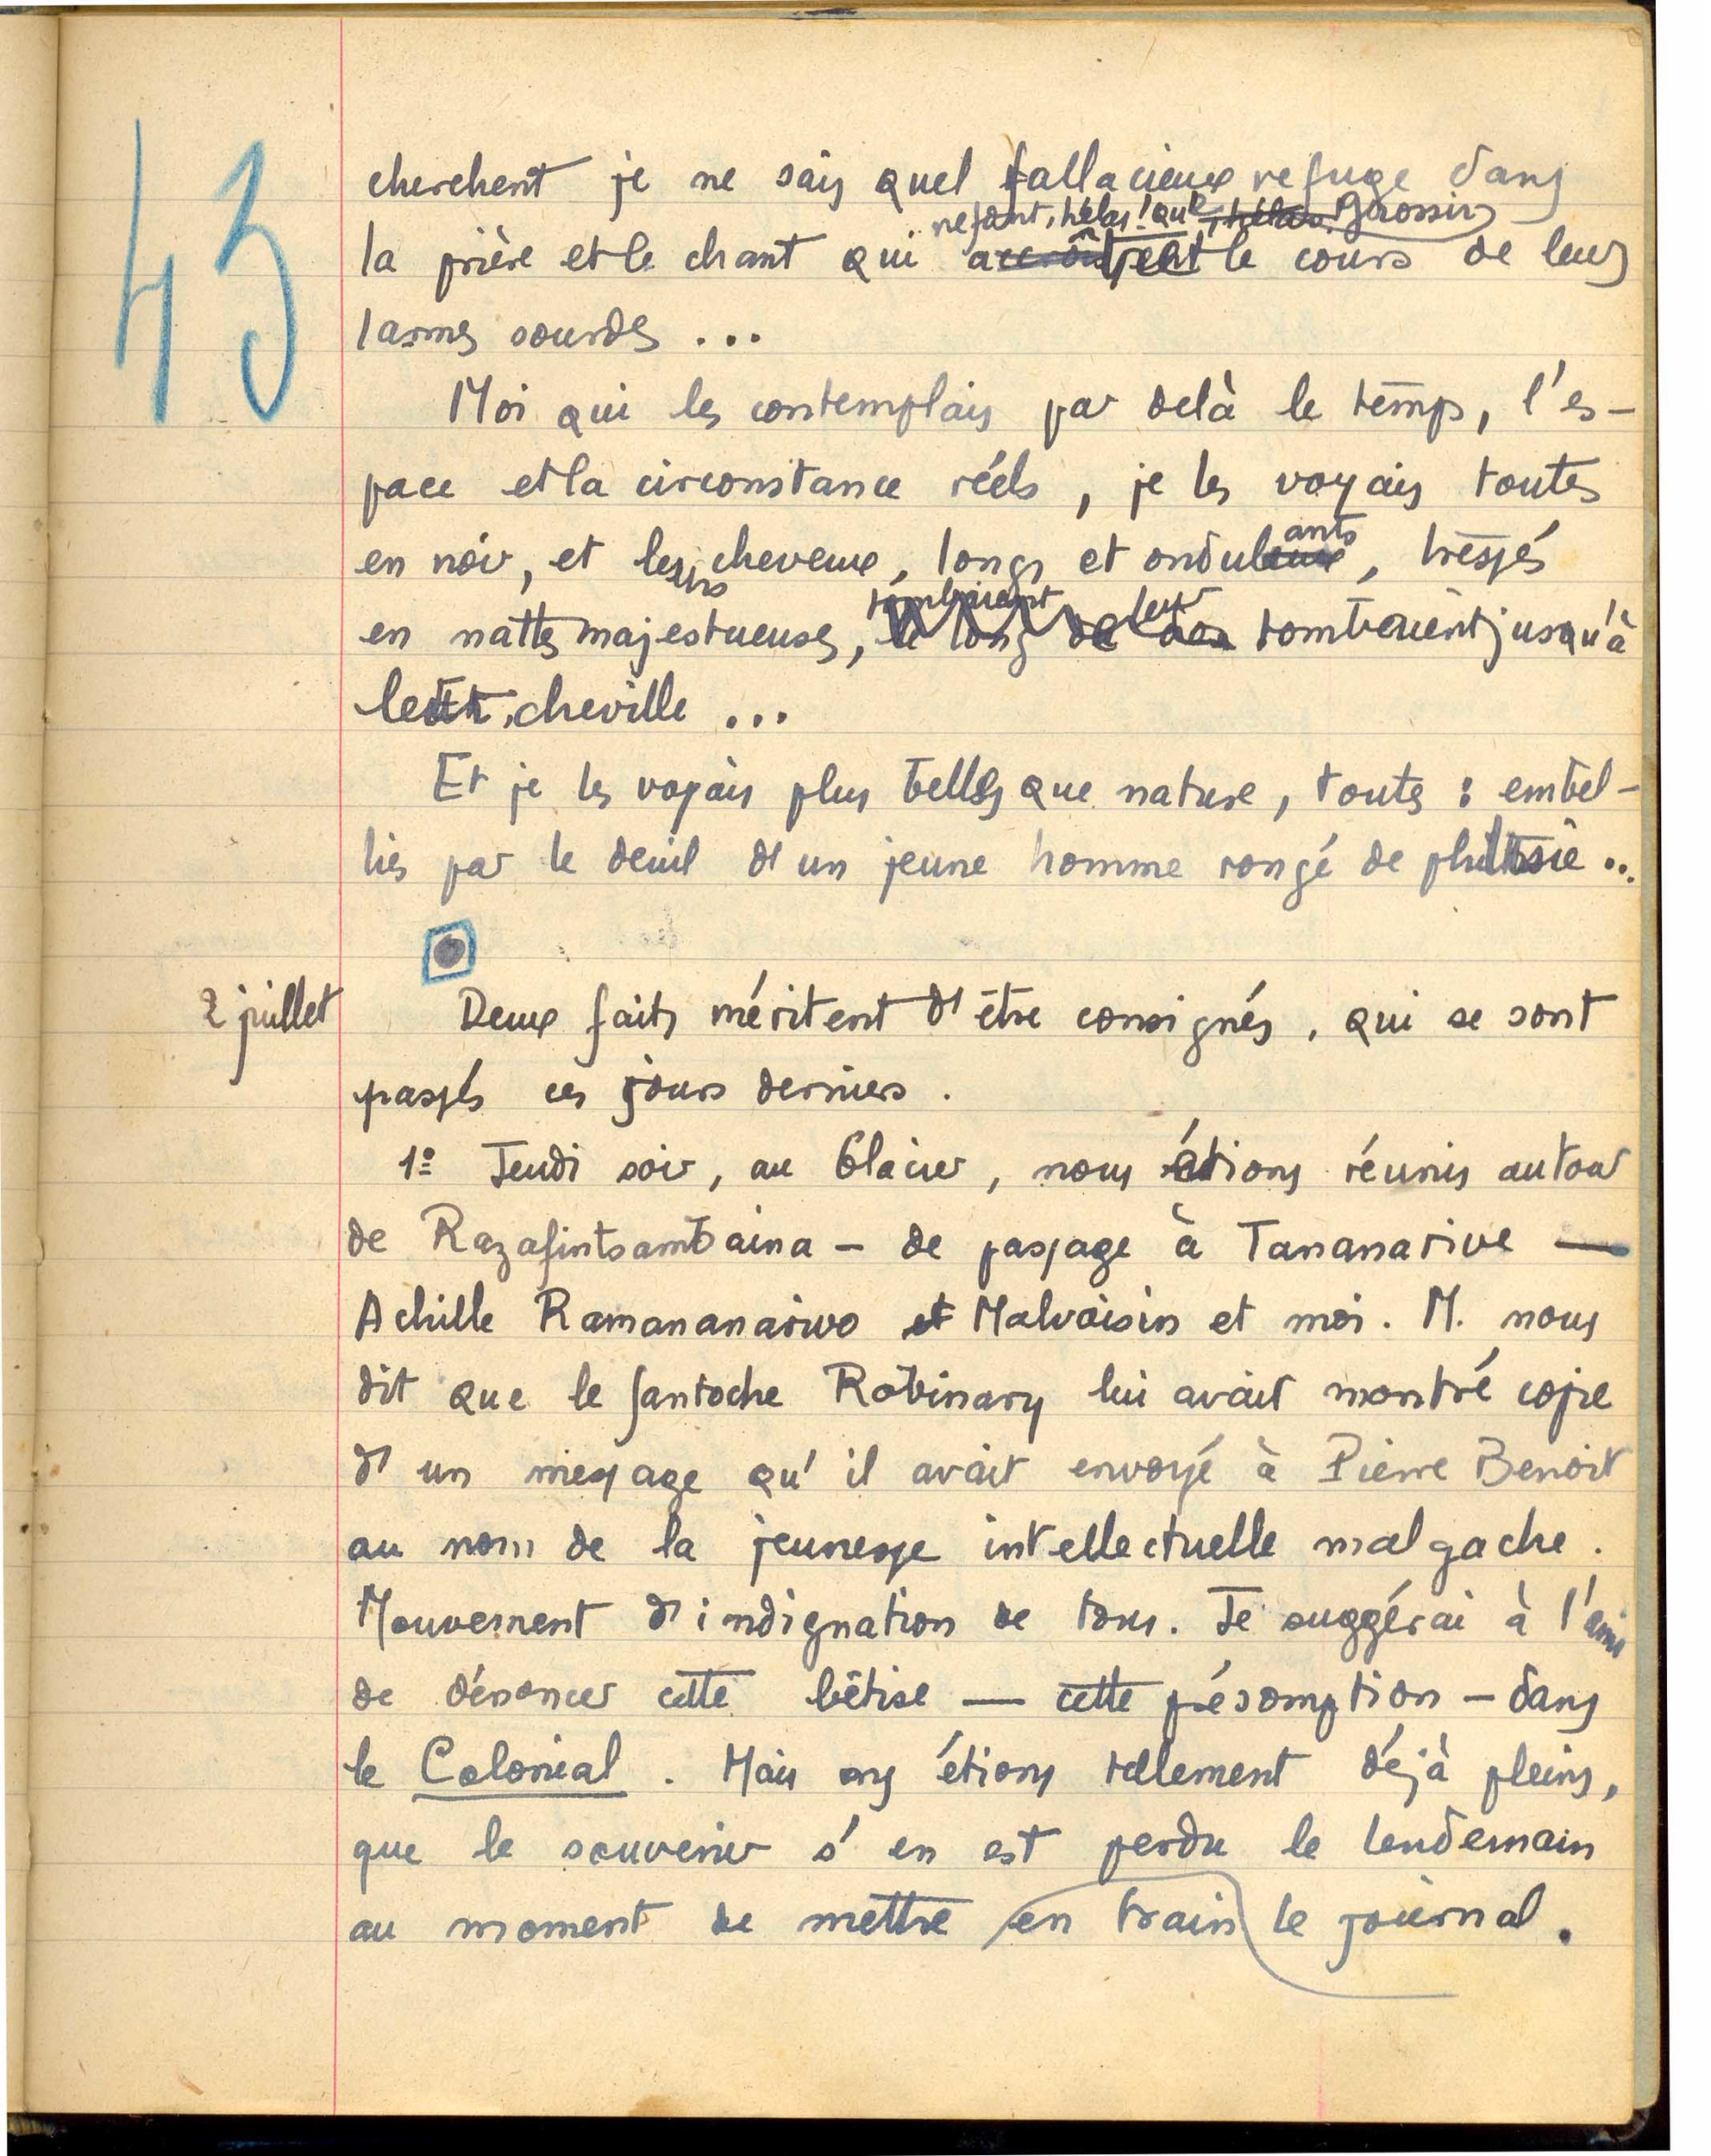 43
cherchent je ne sais quel fallacieux refuge dans
ne font, hélas! que, hélas. grossir
la prière et le chant qui accroîtrent le cours de leurs
larmes sourdes ...
Moi qui les contemplais par delà le temps, l'es-
pace et la circonstance réels, je les voyais toutes
ants
en noir, et leurs cheveux, longs et onduleux, tressés
tombaient leur
en nattes majestueuses, le long de tombaient jusqu'à
leur cheville ...
Et je les voyais plus belles que nature, toutes : embel-
lies par le deuil d'un jeune homme rongé de phtisie ...
2 juillet
Deux faits méritent d'être consignés, qui se sont
passés ces jours derniers.
1º Jeudi soir, au Glacier, nous étions réunis autour
de Razafintsambaina – de passage à Tananarive —
Achille Ramananarivo et Malvoisin et moi. M. nous
dit que le fantoche Robinary lui avait montré copie
d'un message qu'il avait envoyé à Pierre Benoit
au nom de la jeunesse intellectuelle malgache.
Mouvement d'indignation de tous. Je suggérai à l'ami
de dénoncer cette bêtise — cette présomption – dans
le Colonial. Mais ns étions tellement déjà pleins,
que le souvenir s'en est perdu le lendemain
au moment de mettre en train le journal.